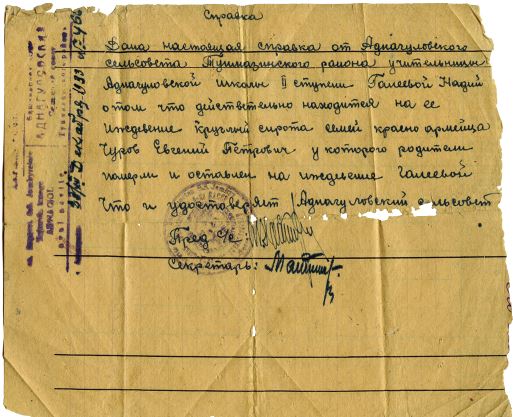 Справка
Дана настоящая справка от Аднагуловского
сельсовета Туймазинского района учительнице
Аднагуловской школы II ступени Галеевой Надии
о том что действительно находится на ее
иждевение круглый сирота семей красно армейца
Чуров Евгений Петрович у которого родители
померли и оставлен на иждевение Галеевой
Что и удостоверяет Аднагуловский сельсовет
Пред с/с
Секретарь:
АДНАГУЛОВСКИЙ
Декабря 1933